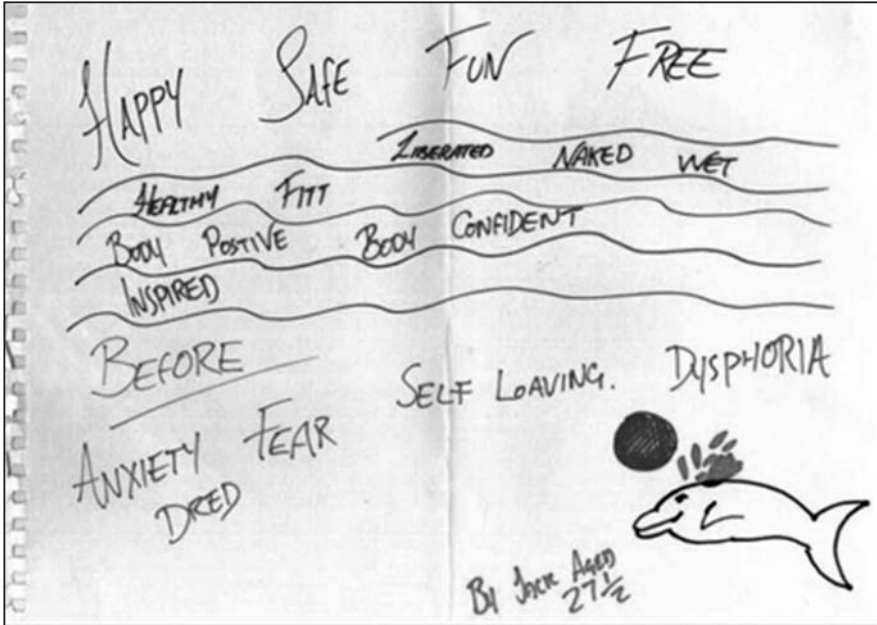 HAPPY SAFE FUN FREE
LIBERATED NAKED WET
HEALTHY FITT
BODY POSTIVE BODY CONFIDENT
INSPIRED
BEFORE
SELF LOAVING. DYSPHORIA
ANXIETY FEAR
DRED
BY JACK AGED
27½